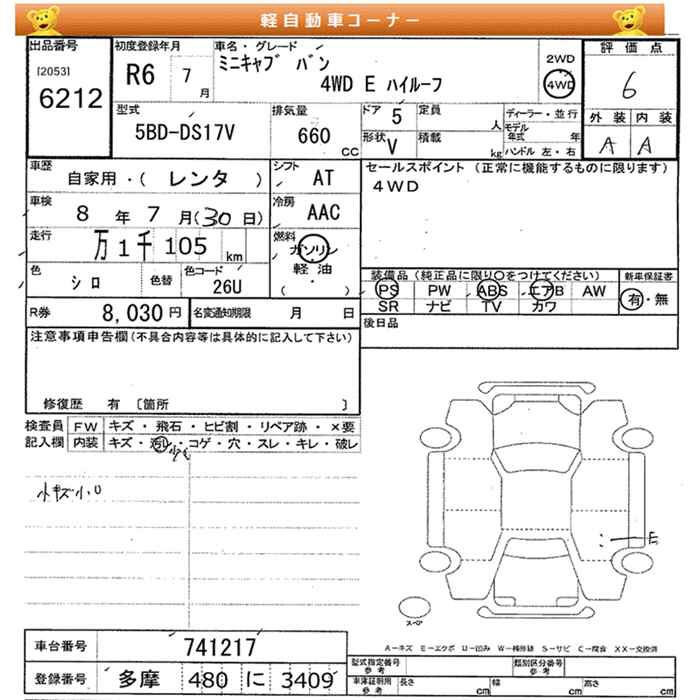 軽自動車コーナー
出品番号
[2053]
6212
初度登録年月
R6 7月
車名・グレード
ミニキャブ バン
4WD E ハイルーフ
2WD
4WD
評価点
6
外装 内装
A A
型式
5BD-DS17V
排気量
660 cc
ドア 5
定員 人
形状 V
積載 kg
ディーラー・並行
モデル年式 年
ハンドル 左・右
車歴
自家用・( レンタ )
シフト
AT
セールスポイント(正常に機能するものに限ります)
4WD
車検
8年7月(30日)
冷房
AAC
走行
万1千105 km
燃料
ガソリン
軽油
( ・ )
色
シロ
色替
色コード
26U
装備品(純正品に限り〇をつけてください)
PS PW ABS エアB AW
SR ナビ TV カワ
新車保証書
有・無
R券 8,030円
名変通知期限 月 日
後日品
注意事項申告欄(不具合内容等は具体的に記入して下さい)
修復歴 有 〔箇所 〕
検査員記入欄
FW キズ・飛石・ヒビ割・リペア跡・×要
内装 キズ・汚レ・コゲ・穴・スレ・キレ・破レ
小キズ小凹
E
スペア
A-キズ E-エクボ U-凹み W-補修跡 S-サビ C-腐食 XX-交換済
車台番号 741217
登録番号 多摩 480 に 3409
型式指定番号 参考
類別区分番号 参考
車庫証明用 参考
長さ cm 幅 cm 高さ cm